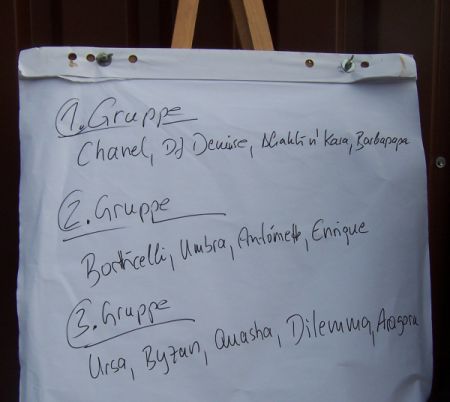 1. Gruppe
Chanel, DJ Denise, Khakti n' Kasa, Barbapapa
2. Gruppe
Botticelli, Umbra, Antómette, Enrique
3. Gruppe
Ursa, Byzan, Amasha, Dilemma, Aragorn